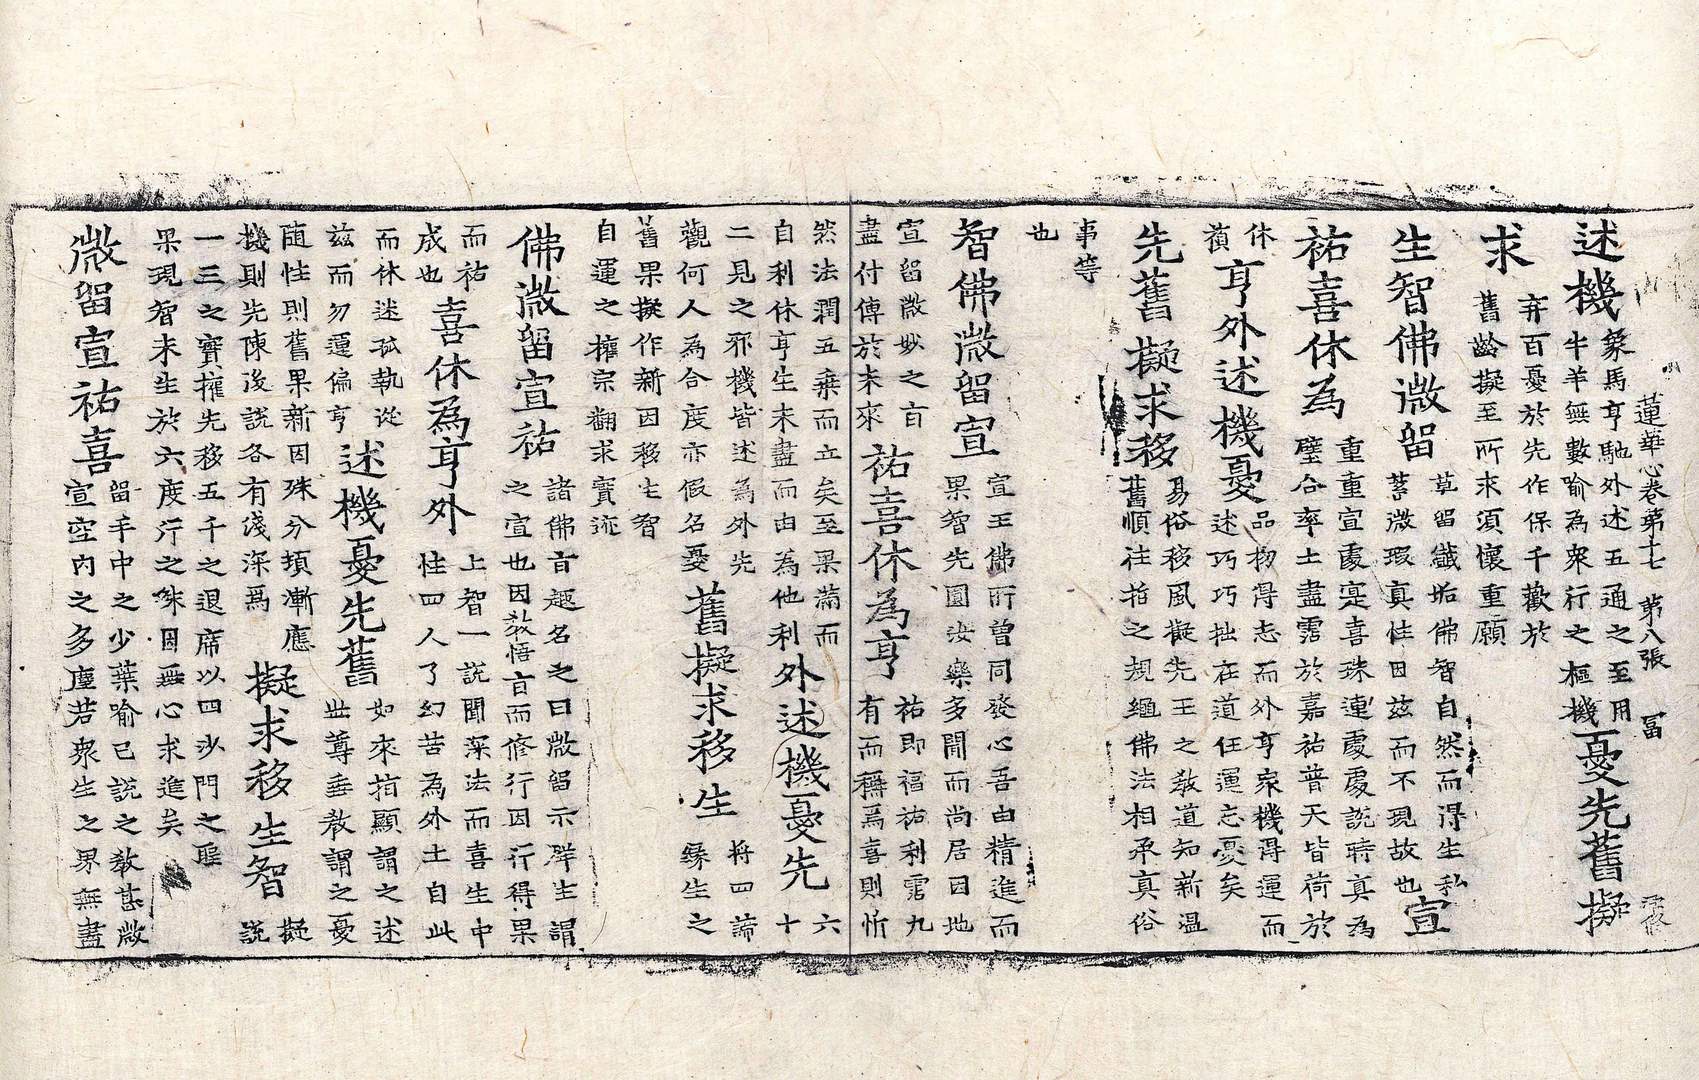 蓮華心卷第十七　第八張　冨
述機
象馬亨馳外述五通之至用
牛羊無數喻為衆行之樞機
憂先舊擬
求
弃百憂於先作保千歡於
舊齡擬至所求須懷重願
生智佛微留
草留纖垢佛智自然而得生私
莟微瑕真性因兹而不現故也
宣
祐喜休為
重重宣處寔喜珠連處處説時真為
璧合率土盡霑於嘉祐普天皆荷於
休
禎
亨外述機憂
品物得志而外亨衆機得運而
述巧巧拙在道任運忘憂矣
先舊擬求移
易俗移風擬先王之教道知新温
舊順往指之規繩佛法相承真俗
事等
也
智佛微留宣
宣王佛所曾同發心吾由精進而
果智先圓汝樂多聞而尚居因地
宣留微妙之言
盡付傳於未來
祐喜休為亨
祐即福祐利霑九
有而稱焉喜則忻
然法潤五乗而立矣至果滿而
自利休亨生未盡而由為他利
外述機憂先
六
十
二見之邪機皆述為外先
觀何人為合度亦假名憂
舊擬求移生
将四諦
縁生之
舊果擬作新因移生智
自運之權宗翻求實流
佛微留宣祐
諸佛言趣名之曰微留示群生謂
之宣也因教悟言而修行因行得果
而祐
成也
喜休為亨外
上智一説聞深法而喜生中
性四人了幻苦為外土自此
而休迷孤執從
兹而勿遷偏亨
述機憂先舊
如來指顯謂之述
世尊垂教謂之憂
随性則舊果新因殊分頓漸應
機則先陳後説各有浅深焉
擬求移生智
擬
説
一三之實權先移五千之退席以四沙門之聖
果現智未生於六度行之殊因無心求進矣
微留宣祐喜
留手中之少葉喻已説之教甚微
宣空内之多塵若衆生之界無盡